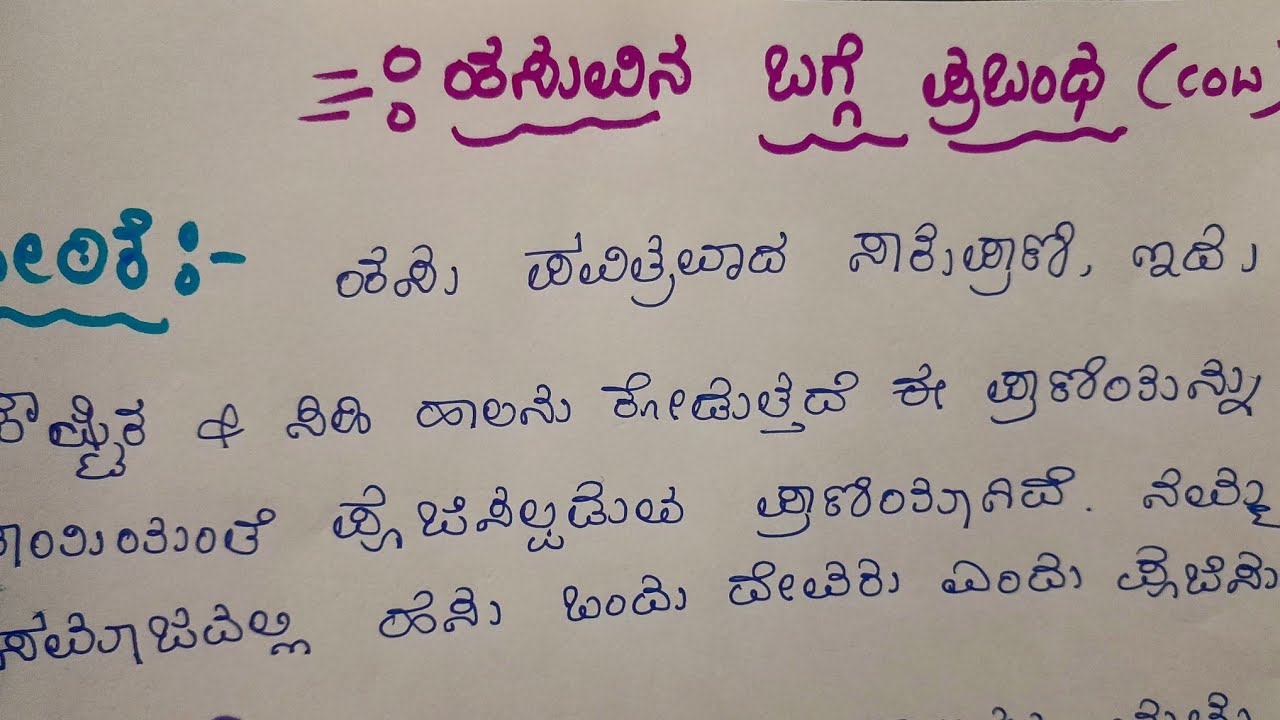 =: ಹಸುವಿನ ಬಗ್ಗೆ ಪ್ರಬಂಧ (cow)
ಪೀಠಿಕೆ :- ಹಸು ಪವಿತ್ರವಾದ ಸಾಕುಪ್ರಾಣಿ, ಇದು
ಪೌಷ್ಟಿಕ & ಸಿಹಿ ಹಾಲನು ಕೋಡುತ್ತದೆ ಈ ಪ್ರಾಣಿಯನ್ನು
ತಾಯಿಯಂತೆ ಪೂಜಿಸಲ್ಪಡುವ ಪ್ರಾಣಿಯಾಗಿದೆ. ನಮ್ಮ
ಸಮಾಜದಲ್ಲಿ ಹಸು ಒಂದು ದೇವರು ಎಂದು ಪೂಜಿಸು